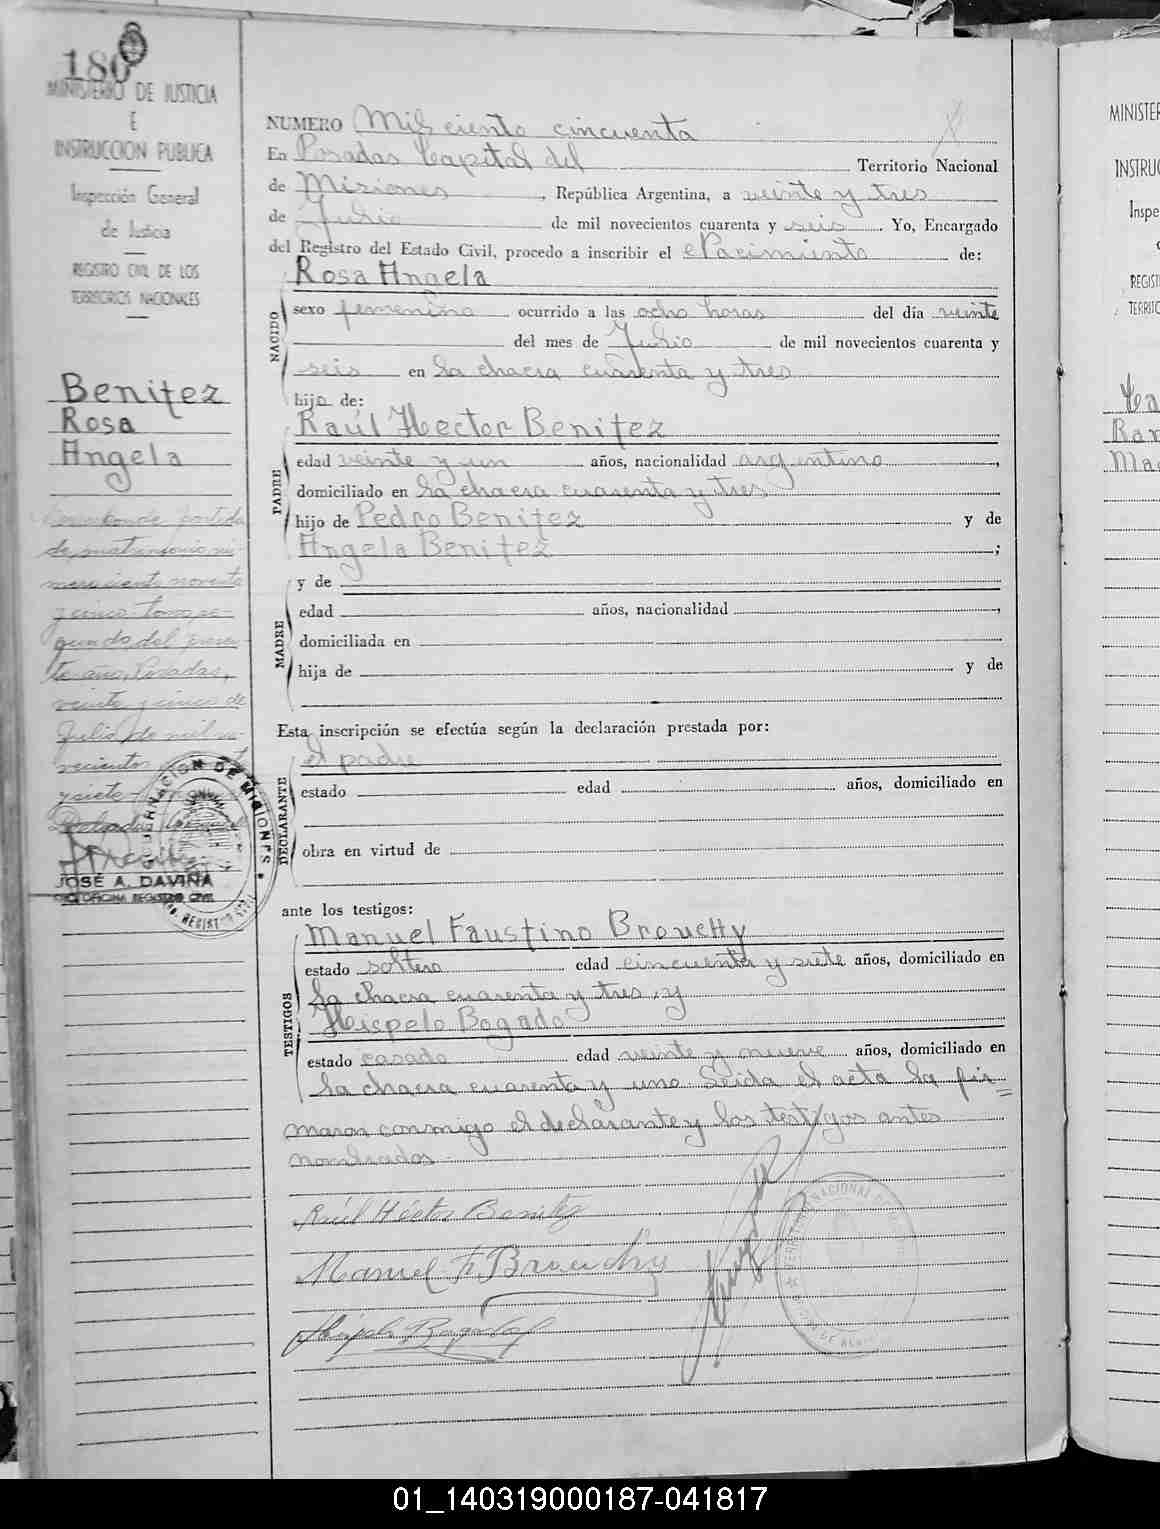 180
MINISTERIO DE JUSTICIA
E
INSTRUCCION PUBLICA
Inspección General
de Justicia
REGISTRO CIVIL DE LOS
TERRITORIOS NACIONALES
Benitez
Rosa
Angela
Corresponde partida
de matrimonio nú-
mero ciento noventa
y cinco tomo se-
gundo del presen-
te año, Posadas,
veinte y cinco de
Julio de mil no-
vecientos
y siete
GOBERNACION DE MISIONES
REGISTRO CIVIL
JOSÉ A. DAVIÑA
OFICINA REGISTRO CIVIL
NUMERO Mil ciento cincuenta
En Posadas Capital del Territorio Nacional
de Misiones, República Argentina, a veinte y tres
de Julio de mil novecientos cuarenta y seis. Yo, Encargado
del Registro del Estado Civil, procedo a inscribir el Nacimiento de:
NACIDO
Rosa Angela
sexo femenino ocurrido a las ocho horas del día veinte
del mes de Julio de mil novecientos cuarenta y
seis en la chacra cuarenta y tres
hijo de:
PADRE
Raúl Hector Benitez
edad veinte y un años, nacionalidad argentino,
domiciliado en la chacra cuarenta y tres
hijo de Pedro Benitez y de
Angela Benitez;
MADRE
y de
edad años, nacionalidad,
domiciliada en
hija de y de
Esta inscripción se efectúa según la declaración prestada por:
DECLARANTE
el padre
estado edad años, domiciliado en
obra en virtud de
ante los testigos:
TESTIGOS
Manuel Faustino Brouchy
estado soltero edad cincuenta y siete años, domiciliado en
la chacra cuarenta y tres, y
Hispolo Bogado
estado casado edad veinte y nueve años, domiciliado en
la chacra cuarenta y uno Leida el acta la fir=
maron conmigo el declarante y los testigos antes
nombrados
Raúl Héctor Benitez
Manuel F. Brouchy
01_140319000187-041817
MINISTER
INSTRUC
Inspe
REGIST
TERRITO
Ra
Ma